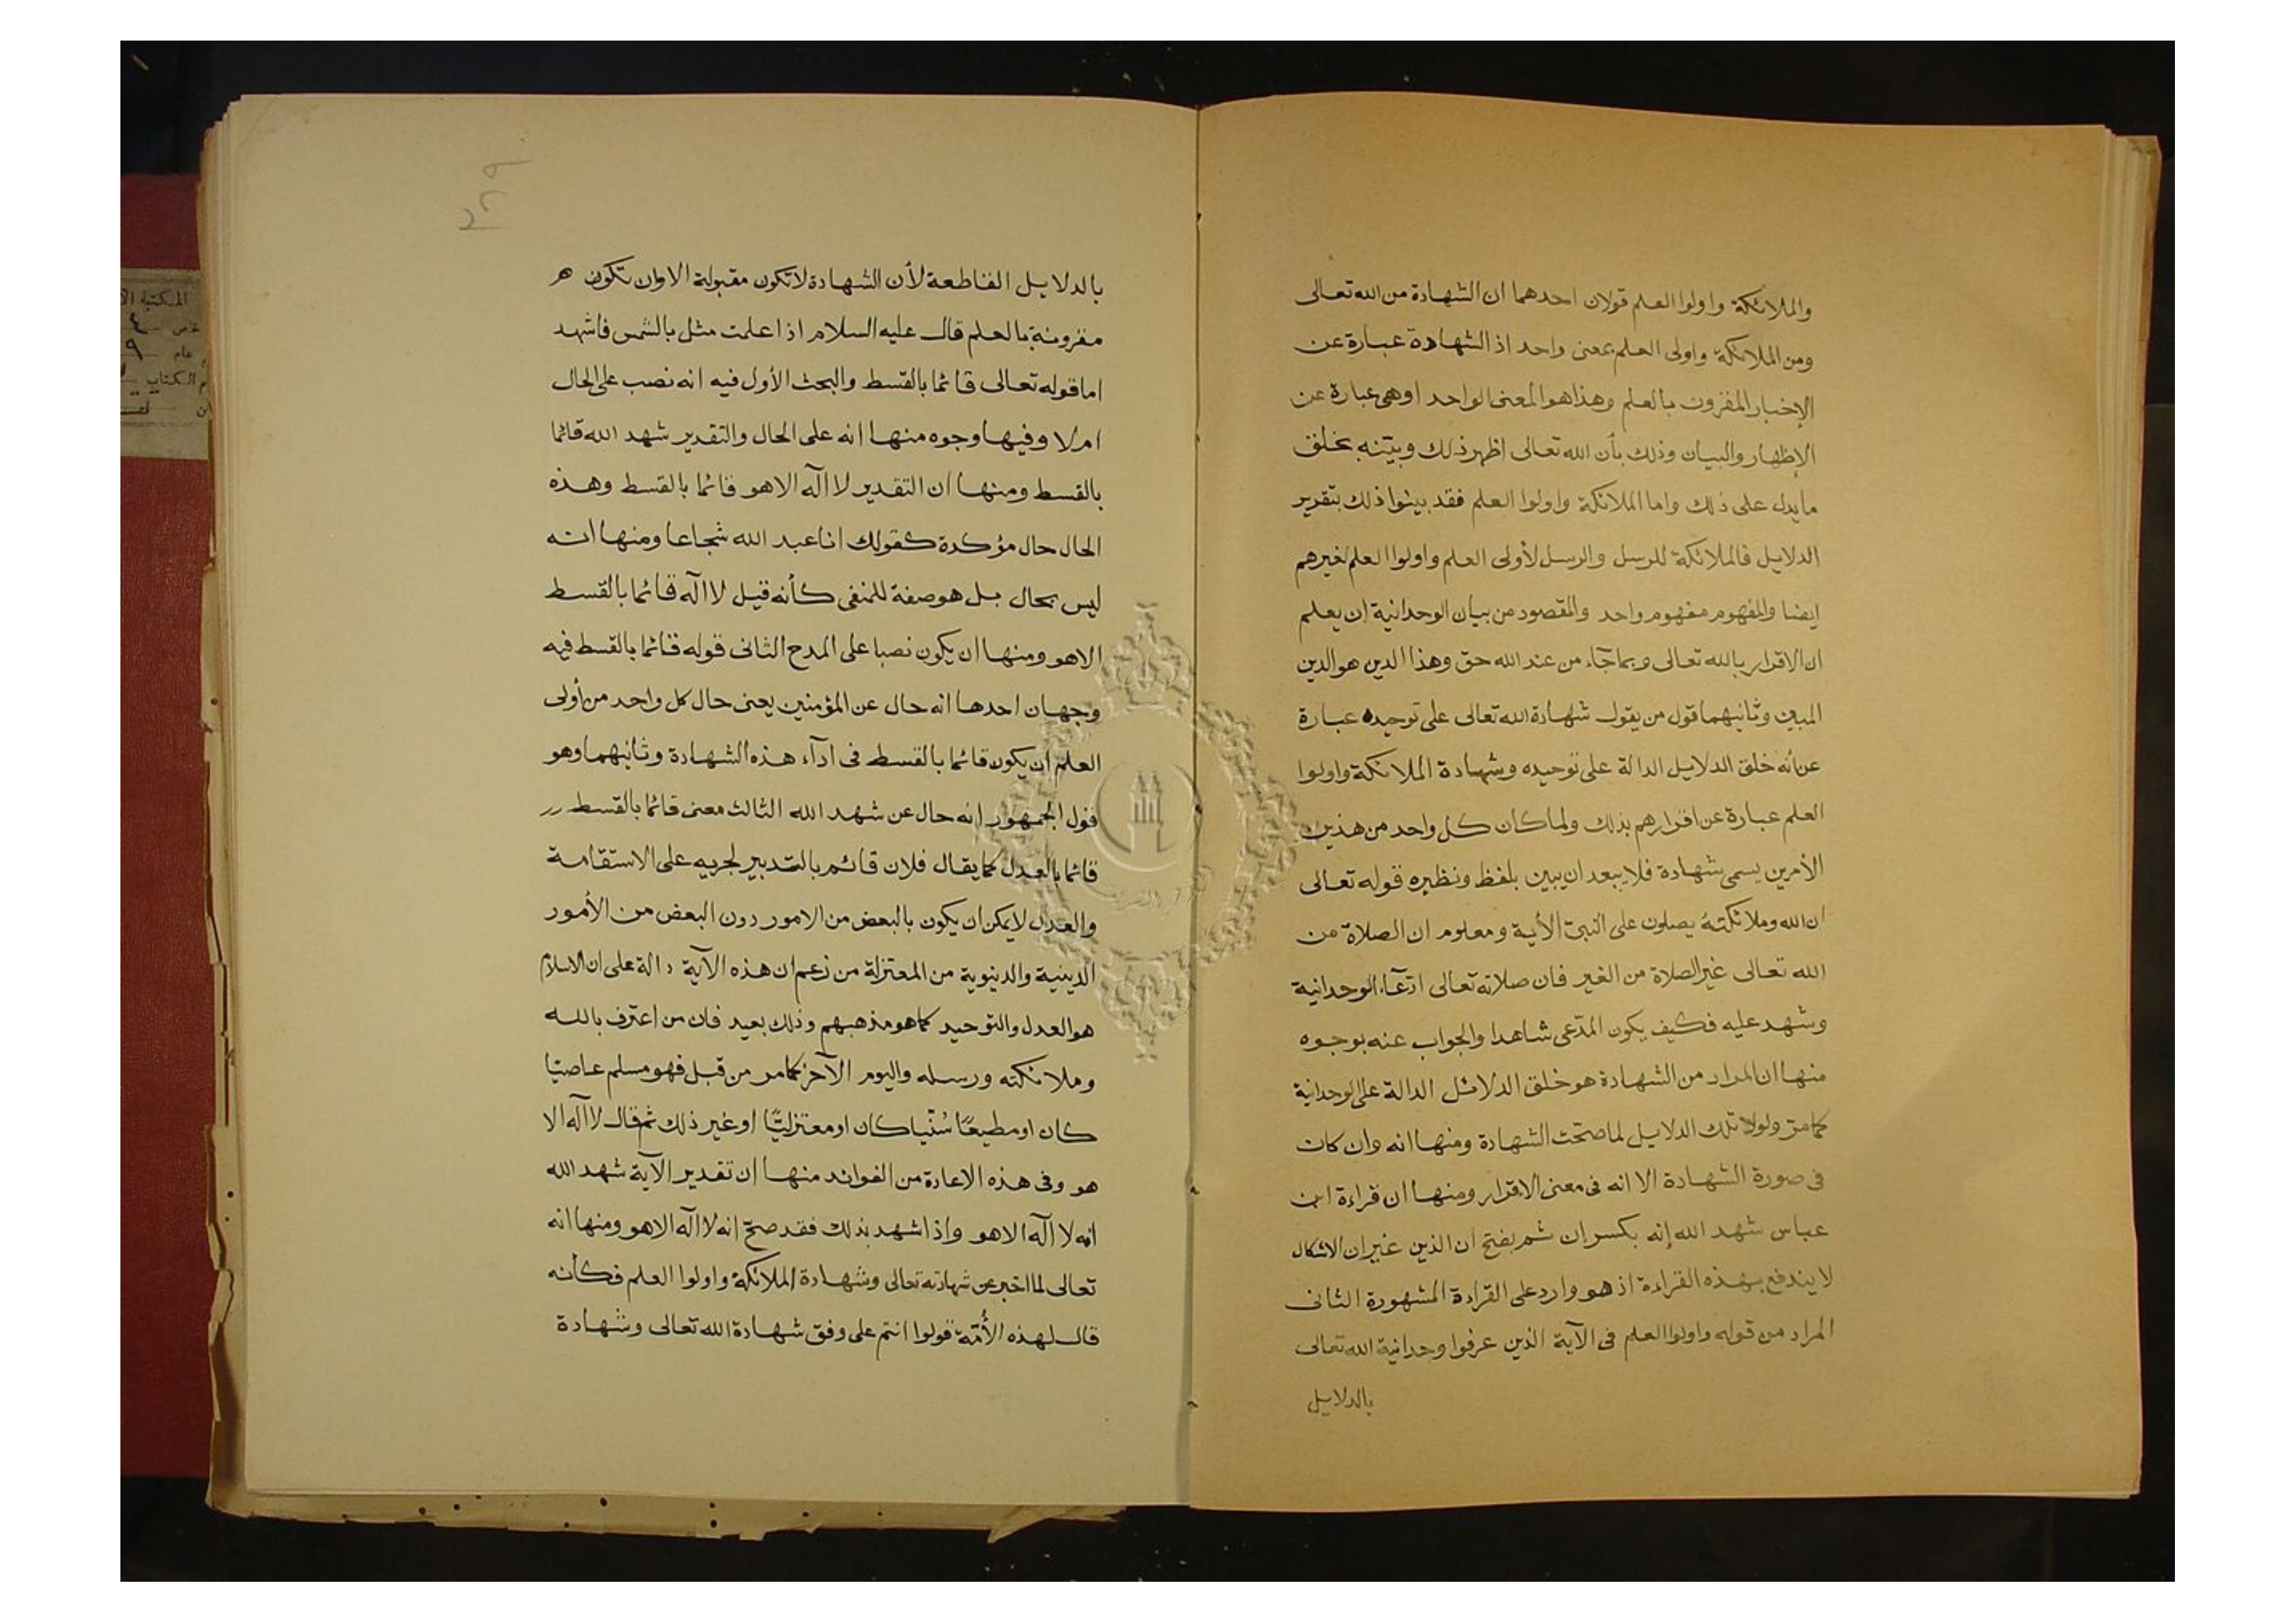 والملائكة واولوا العلم قولان احدهما ان الشهادة من الله تعالى
ومن الملائكة واولى العلم بمعنى واحد اذ الشهادة عبارة عن
الإخبار المقرون بالعلم وهذا هو المعنى الواحد اوهى عبارة عن
الإظهار والبيان وذلك بأن الله تعالى اظهر ذلك وبيّنه بخلق
ما يدل على ذلك واما الملائكة واولوا العلم فقد بينوا ذلك بتقرير
الدلايل فالملائكة للرسل والرسل لأولى العلم واولوا العلم لغيرهم
ايضا والمفهوم مفهوم واحد والمقصود من بيان الوحدانية ان يعلم
ان الاقرار بالله تعالى وبما جآء من عند الله حق وهذا الدين هو الدين
المبين وثانيهما قول من يقول شهادة الله تعالى على توحيده عبارة
عن أنه خلق الدلايل الدالة على توحيده وشهادة الملائكة واولوا
العلم عبارة عن اقرارهم بذلك ولما كان كل واحد من هذين
الأمرين يسمى شهادة فلا يبعد ان يبين بلفظ ونظيره قوله تعالى
ان الله وملائكتهُ يصلون على النبىّ الأية ومعلوم ان الصلاة من
الله تعالى غير الصلاة من الغير فان صلاته تعالى ادّعآء الوحدانية
وشهد عليه فكيف يكون المدّعى شاهدا والجواب عنه بوجوه
منها ان المراد من الشهادة هو خلق الدلائل الدالة على الوحدانية
كما مرّ ولولا تلك الدلايل لما صحّت الشهادة ومنها انه وان كان
فى صورة الشهادة الا انه فى معنى الاقرار ومنها ان قراءة ابن
عباس شهد الله إنه بكسر ان ثم بفتح ان الذين غير ان الاشكال
لا يندفع بهذه القراءة اذ هو وارد على القراءة المشهورة الثانى
المراد من قوله واولوا العلم فى الآية الذين عرفوا وحدانية الله تعالى
بالدلايل
٢٦٩
بالدلايل القاطعة لأن الشهادة لا تكون مقبولة الا وان تكون ه
مقرونة بالعلم قال عليه السلام اذا علمت مثل بالشمس فاشهد
اما قوله تعالى قائما بالقسط والبحث الأول فيه انه نصب على الحال
ام لا وفيها وجوه منها انه على الحال والتقدير شهد الله قائما
بالقسط ومنها ان التقدير لا اله الا هو قائما بالقسط وهذه
الحال حال مؤكدة كقولك انا عبد الله شجاعا ومنها انه
ليس بحال بل هو صفة للمنفى كأنه قيل لا اله قائما بالقسط
الا هو ومنها ان يكون نصبا على المدح الثانى قوله قائما بالقسط فيه
وجهان احدها انه حال عن المؤمنين يعنى حال كل واحد من أولى
العلم ان يكون قائما بالقسط فى ادآء هذه الشهادة وثانيهما وهو
قول الجمهور انه حال عن شهد الله الثالث معنى قائما بالقسط
قائما بالعدل كما يقال فلان قائم بالتدبير لجريه على الاستقامة
والعدل لا يمكن ان يكون بالبعض من الامور دون البعض من الأمور
الدينية والدنيوية من المعتزلة من زعم ان هذه الآية دالة على ان الاسلام
هو العدل والتوحيد كما هو مذهبهم وذلك بعيد فان من اعترف بالله
وملائكته ورسله واليوم الآخر كما مر من قبل فهو مسلم عاصيّا
كان او مطيعًا سُنّيا كان او معتزليّا او غير ذلك ثم قال لا اله الا
هو وفى هذه الاعادة من الفوائد منها ان تقدير الآية شهد الله
انه لا اله الا هو واذا شهد بذلك فقد صحّ انه لا اله الا هو ومنها انه
تعالى لما اخبر عن شهادته تعالى وشهادة الملائكة واولوا العلم فكأنه
قال لهذه الأُمّة قولوا انتم على وفق شهادة الله تعالى وشهادة